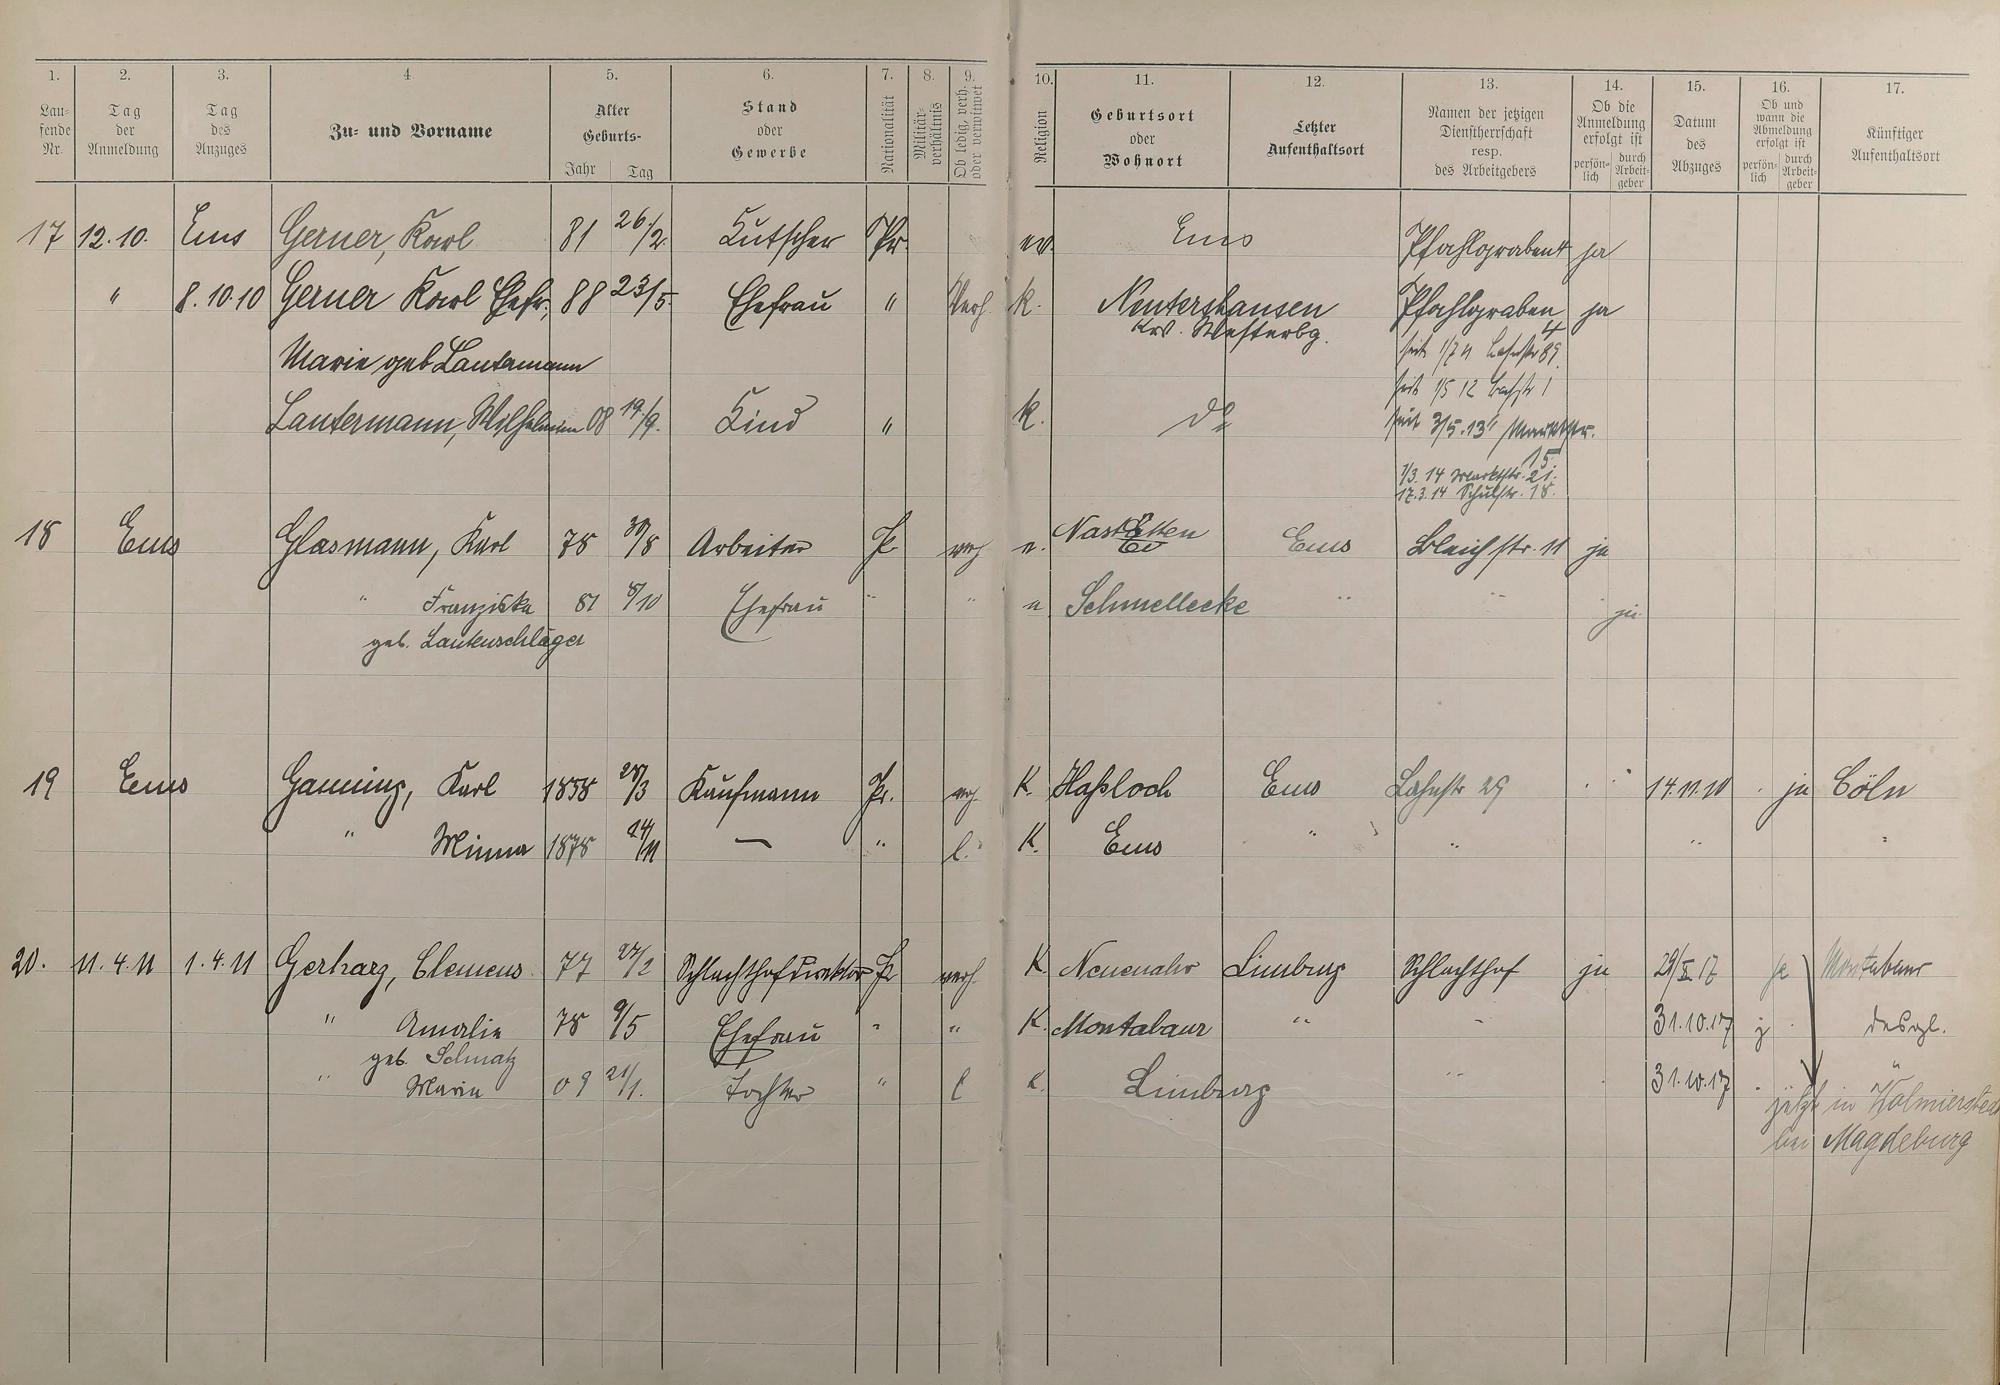 1. 2. 3. 4 5. 6. 7. 8. 9. 10. 11. 12. 13. 14. 15. 16. 17.
Lau-
fende
Nr.
Tag
der
Anmeldung
Tag
des
Anzuges
Zu- und Vorname
Alter
Geburts-
Jahr Tag
Stand
oder
Gewerbe
Nationalität
Militär-
verhältnis
Ob ledig, verh.
oder verwitwet
Religion
Geburtsort
oder
Wohnort
Letzter
Aufenthaltsort
Namen der jetzigen
Dienstherrschaft
resp.
des Arbeitgebers
Ob die
Anmeldung
erfolgt ist
persön-
lich
durch
Arbeit-
geber
Datum
des
Abzuges
Ob und
wann die
Abmeldung
erfolgt ist
persön-
lich
durch
Arbeit-
geber
Künftiger
Aufenthaltsort
17 12.10. Ems Gerner, Karl 81 26/2. Kutscher Pr. ev. Ems Pfahlgraben 4 ja
" 8.10.10 Gerner Karl Ehefr., 88 23/5 Ehefrau " Verh. k. Nentershausen Pfahlgraben 4 ja
Krs. Westerbg.
Marie geb Lautermann seit 1/7 11 Lahnstr 89.
seit 1/5 12 Bachstr 1
Lautermann, Wilhelmine 08 19./9. Kind " k. do seit 3/5.13 Marktstr.
15.
1/3. 14 Marktstr. 21.
17.3.14 Schulstr. 18.
18 Ems Glasmann, Karl 78 30/8 Arbeiter Pr verh e. Nastätten Ems Bleichstr. 11 ja
" Franziska 81 8/10 Ehefrau " " e. Schmellecke " " " ja
geb. Lautenschläger
19 Ems Ganning, Karl 1858 28/3 Kaufmann Pr. verh. K. Haßloch Ems Lahnstr 29 " 14.11.10 . ja Cöln
" Minna 1878 24/11 — " l. K. Ems " " " "
20. 11.4.11 1.4.11 Gerharz, Clemens 77 27/2 Schlachthofdirektor Pr verh. K Neuenahr Limburg Schlachthof ja 29/X 17 ja Montabaur
" Amalie 78 9/5 Ehefrau " " K. Montabaur " " 31.10.17 j desgl.
geb. Schmatz
" Maria 09 21/1. Tochter " l k. Limburg " 31.10.17 "
jetzt in Wolmierstedt
bei Magdeburg